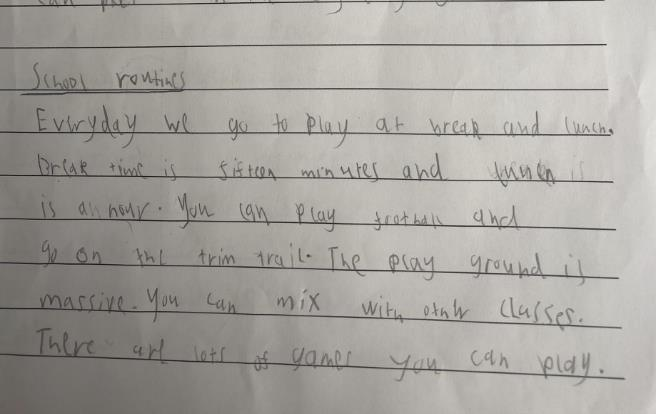 School routines
Everyday we go to play at break and lunch.
Break time is fifteen minutes and lunch is
is an hour. You can play football and
go on the trim trail. The play ground is
massive. You can mix with other classes.
There are lots of games you can play.